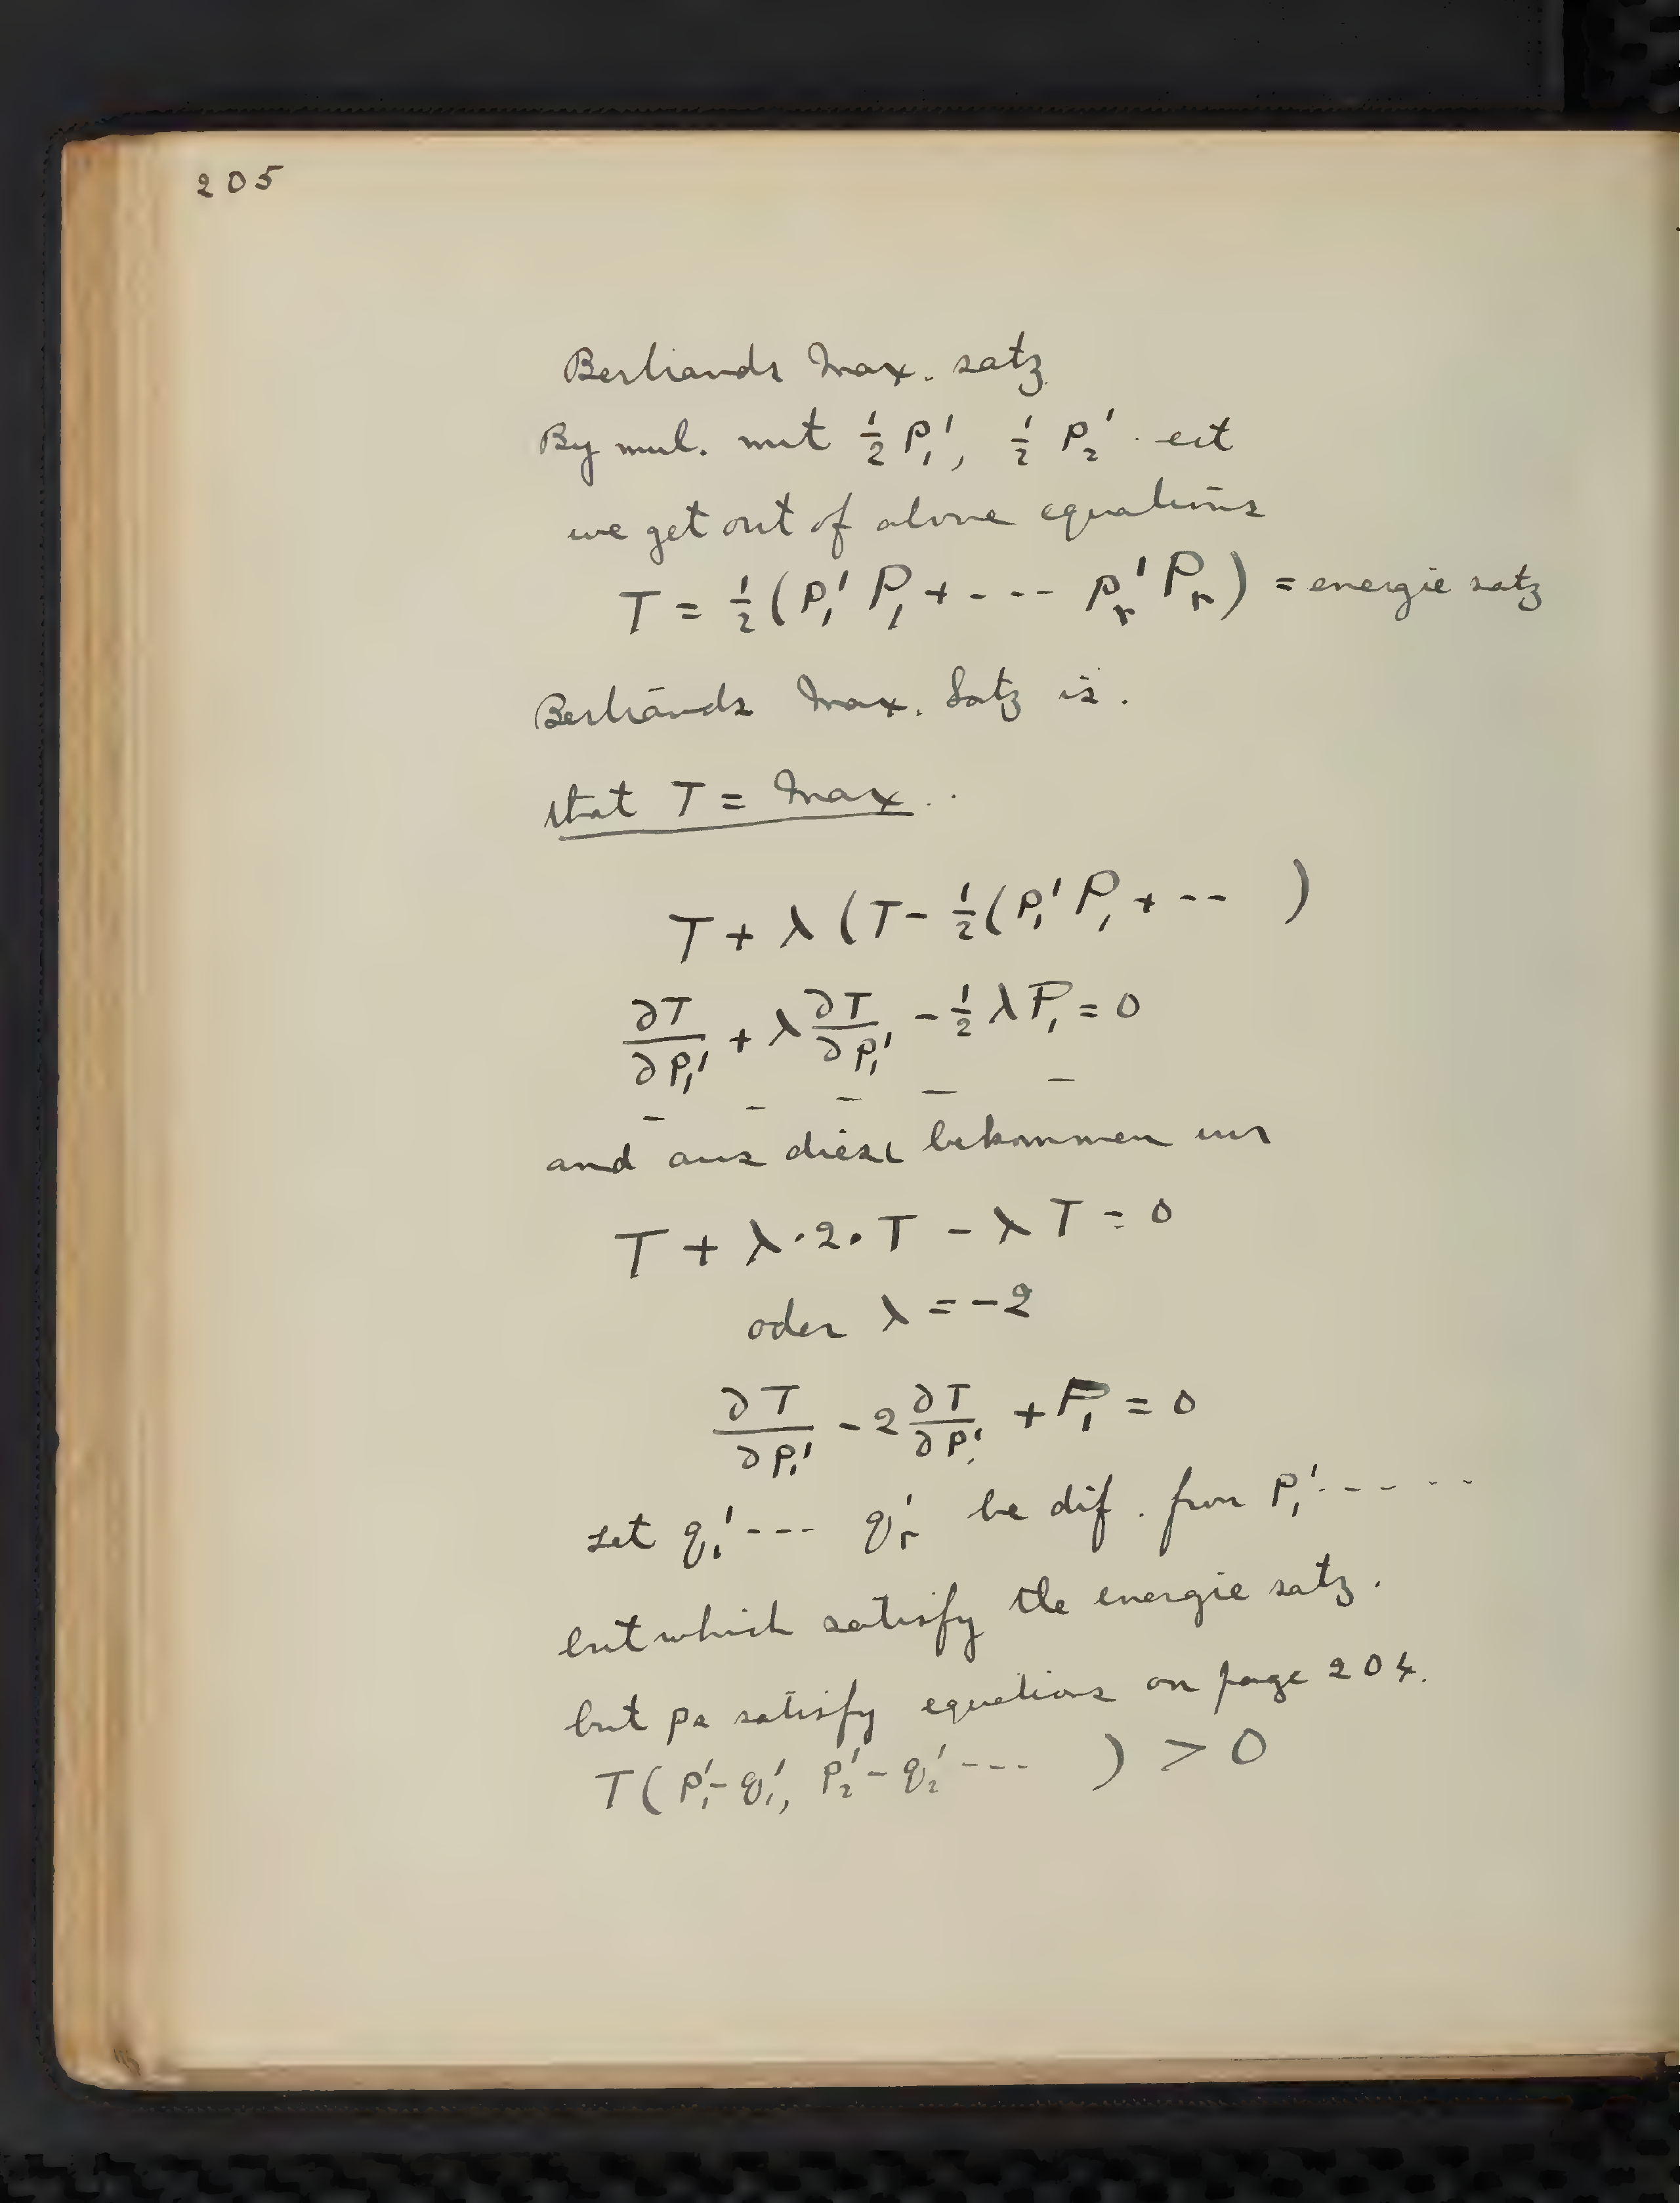 205
Bertrands Max. satz
By mul. mit ½ p₁', ½ p₂' ect
we get out of above equations
T = ½ (p₁' P₁ + - - - pᵣ' Pᵣ) = energie satz
Bertrands Max. Satz is.
that T = Max.
T + λ (T - ½ (p₁' P₁ + - - )
∂T/∂p₁' + λ ∂T/∂p₁' - ½ λ P₁ = 0
- - - - -
and aus diese bekommen wir
T + λ·2·T - λ T = 0
oder λ = -2
∂T/∂p₁' - 2 ∂T/∂p₁' + P₁ = 0
Let q₁' - - - qᵣ' be dif. from p₁' - - - - -
but which satisfy the energie satz.
but ps satisfy equations on page 204.
T (p₁' - q₁', p₂' - q₂' - - - ) > 0